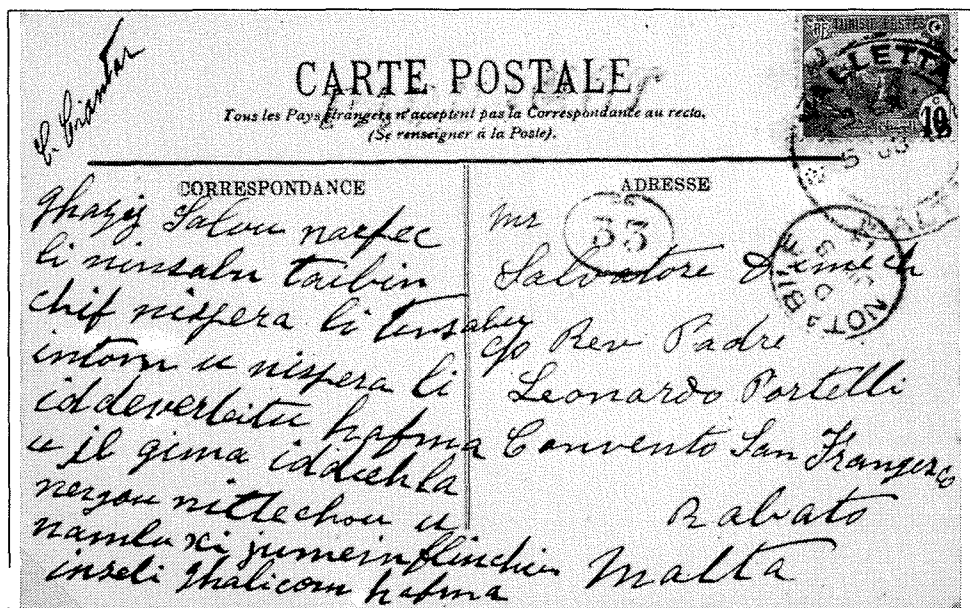 C. Ciantar
CARTE POSTALE
Tous les Pays étrangers n'acceptent pas la Correspondance au recto.
(Se renseigner à la Poste).
TUNISIE POSTES
RF
10
VALLETTA
CORRESPONDANCE
Ghaziz Salvu narfec
li ninsabu taibin
chif nispera li tinsabu
intom u nispera li
iddeverteitu hafna
u il gima iddiehla
nergou nittechou u
namlu xi jumein flimchien
inseli ghalicom hafna
ADRESSE
Mr
33
Salvatore Dimech
c/o Rev Padre
Leonardo Portelli
Convento San Frangesco
Rabato
Malta
NOTABILE